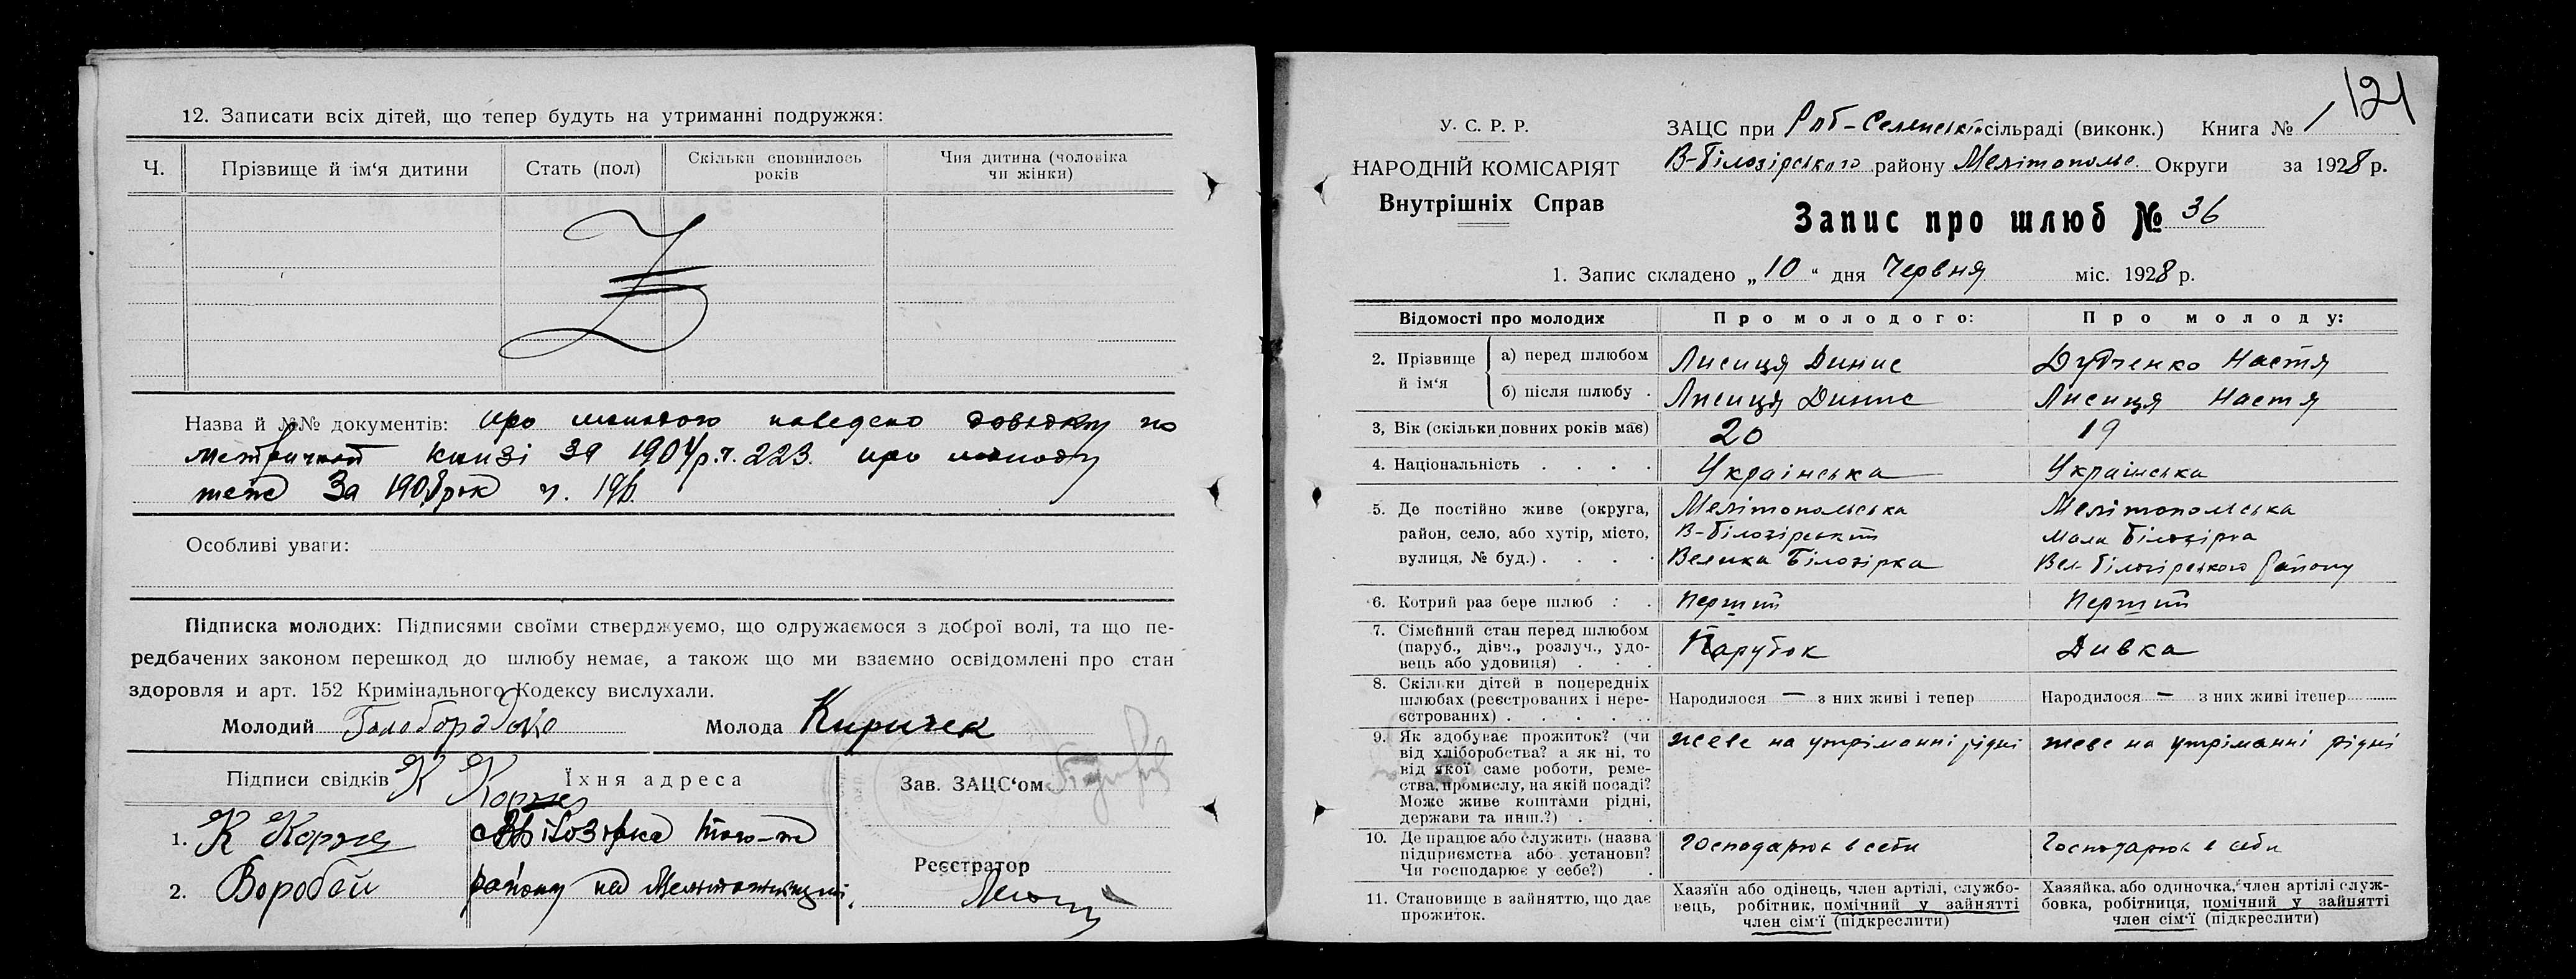 12. Записати всіх дітей, що тепер будуть на утриманні подружжя:
Ч. Прізвище й ім‘я дитини Стать (пол) Скільки сповнилось років Чия дитина (чоловіка чи жінки)
Назва й №№ документів: про молодого наведено довідку по
метричной книзі за 1904 р. ч. 223. про молоду
теж за 1908 рік ч.
Особливі уваги:
Підписка молодих: Підписями своїми стверджуємо, що одружаємося з доброї волі, та що пе-
редбачених законом перешкод до шлюбу немає, а також що ми взаємно освідомлені про стан
здоровля и арт. 152 Кримінального Кодексу вислухали.
Молодий Голобородько Молода Киричек
Підписи свідків Їхня адреса
К Корж
1. К Корж
2. Воробей району на
Зав. ЗАЦС‘ом
Реєстратор
121
У. С. Р. Р.
НАРОДНІЙ КОМІСАРІЯТ
Внутрішніх Справ
ЗАЦС при сільраді (виконк.) Книга № 1
В-Білозірського району Мелітополь. Округи за 1928 р.
Запис про шлюб № 36
1. Запис складено „10“ дня Червня міс. 1928 р.
Відомості про молодих Про молодого: Про молоду:
2. Прізвище й ім‘я
а) перед шлюбом Лисиця Динис Дудченко Настя
б) після шлюбу . Лисиця Динис Лисиця Настя
3, Вік (скільки повних років має) 20 19
4. Національність . . . . Українська Українська
5. Де постійно живе (округа, Мелітопольська Мелітопольська
район, село, або хутір, місто, В-Білозірський Мала Білозірка
вулиця, № буд.) . . . . Велика Білозірка Вел Білозірського Району
6. Котрий раз бере шлюб : . Перший Перший
7. Сімейний стан перед шлюбом
(паруб., дівч., розлуч., удо- Парубок Дивка
вець або удовиця) . . .
8. Скільки дітей в попередніх
шлюбах (реєстрованих і нере- Народилося — з них живі і тепер Народилося — з них живі ітепер
єстрованих) . . . . . .
9. Як здобуває прожиток? (чи живе на утріманні рідні живе на утріманні рідні
від хліборобства? а як ні, то
від якої саме роботи, реме-
ства, промислу, на якій посаді?
Може живе коштами рідні,
держави та инш.?) .
10. Де працює або служить (назва Господарює в себи Господарює в себи
підприємства або установи?
Чи господарює у себе?) .
11. Становище в зайняттю, що дає
прожиток.
Хазяїн або одінець, член артілі, службо-
вець, робітник, помічний у зайнятті
член сім‘ї (підкреслити)
Хазяйка, або одиночка, член артілі служ-
бовка, робітниця, помічний у зайнятті
член сім‘ї (підкреслити)